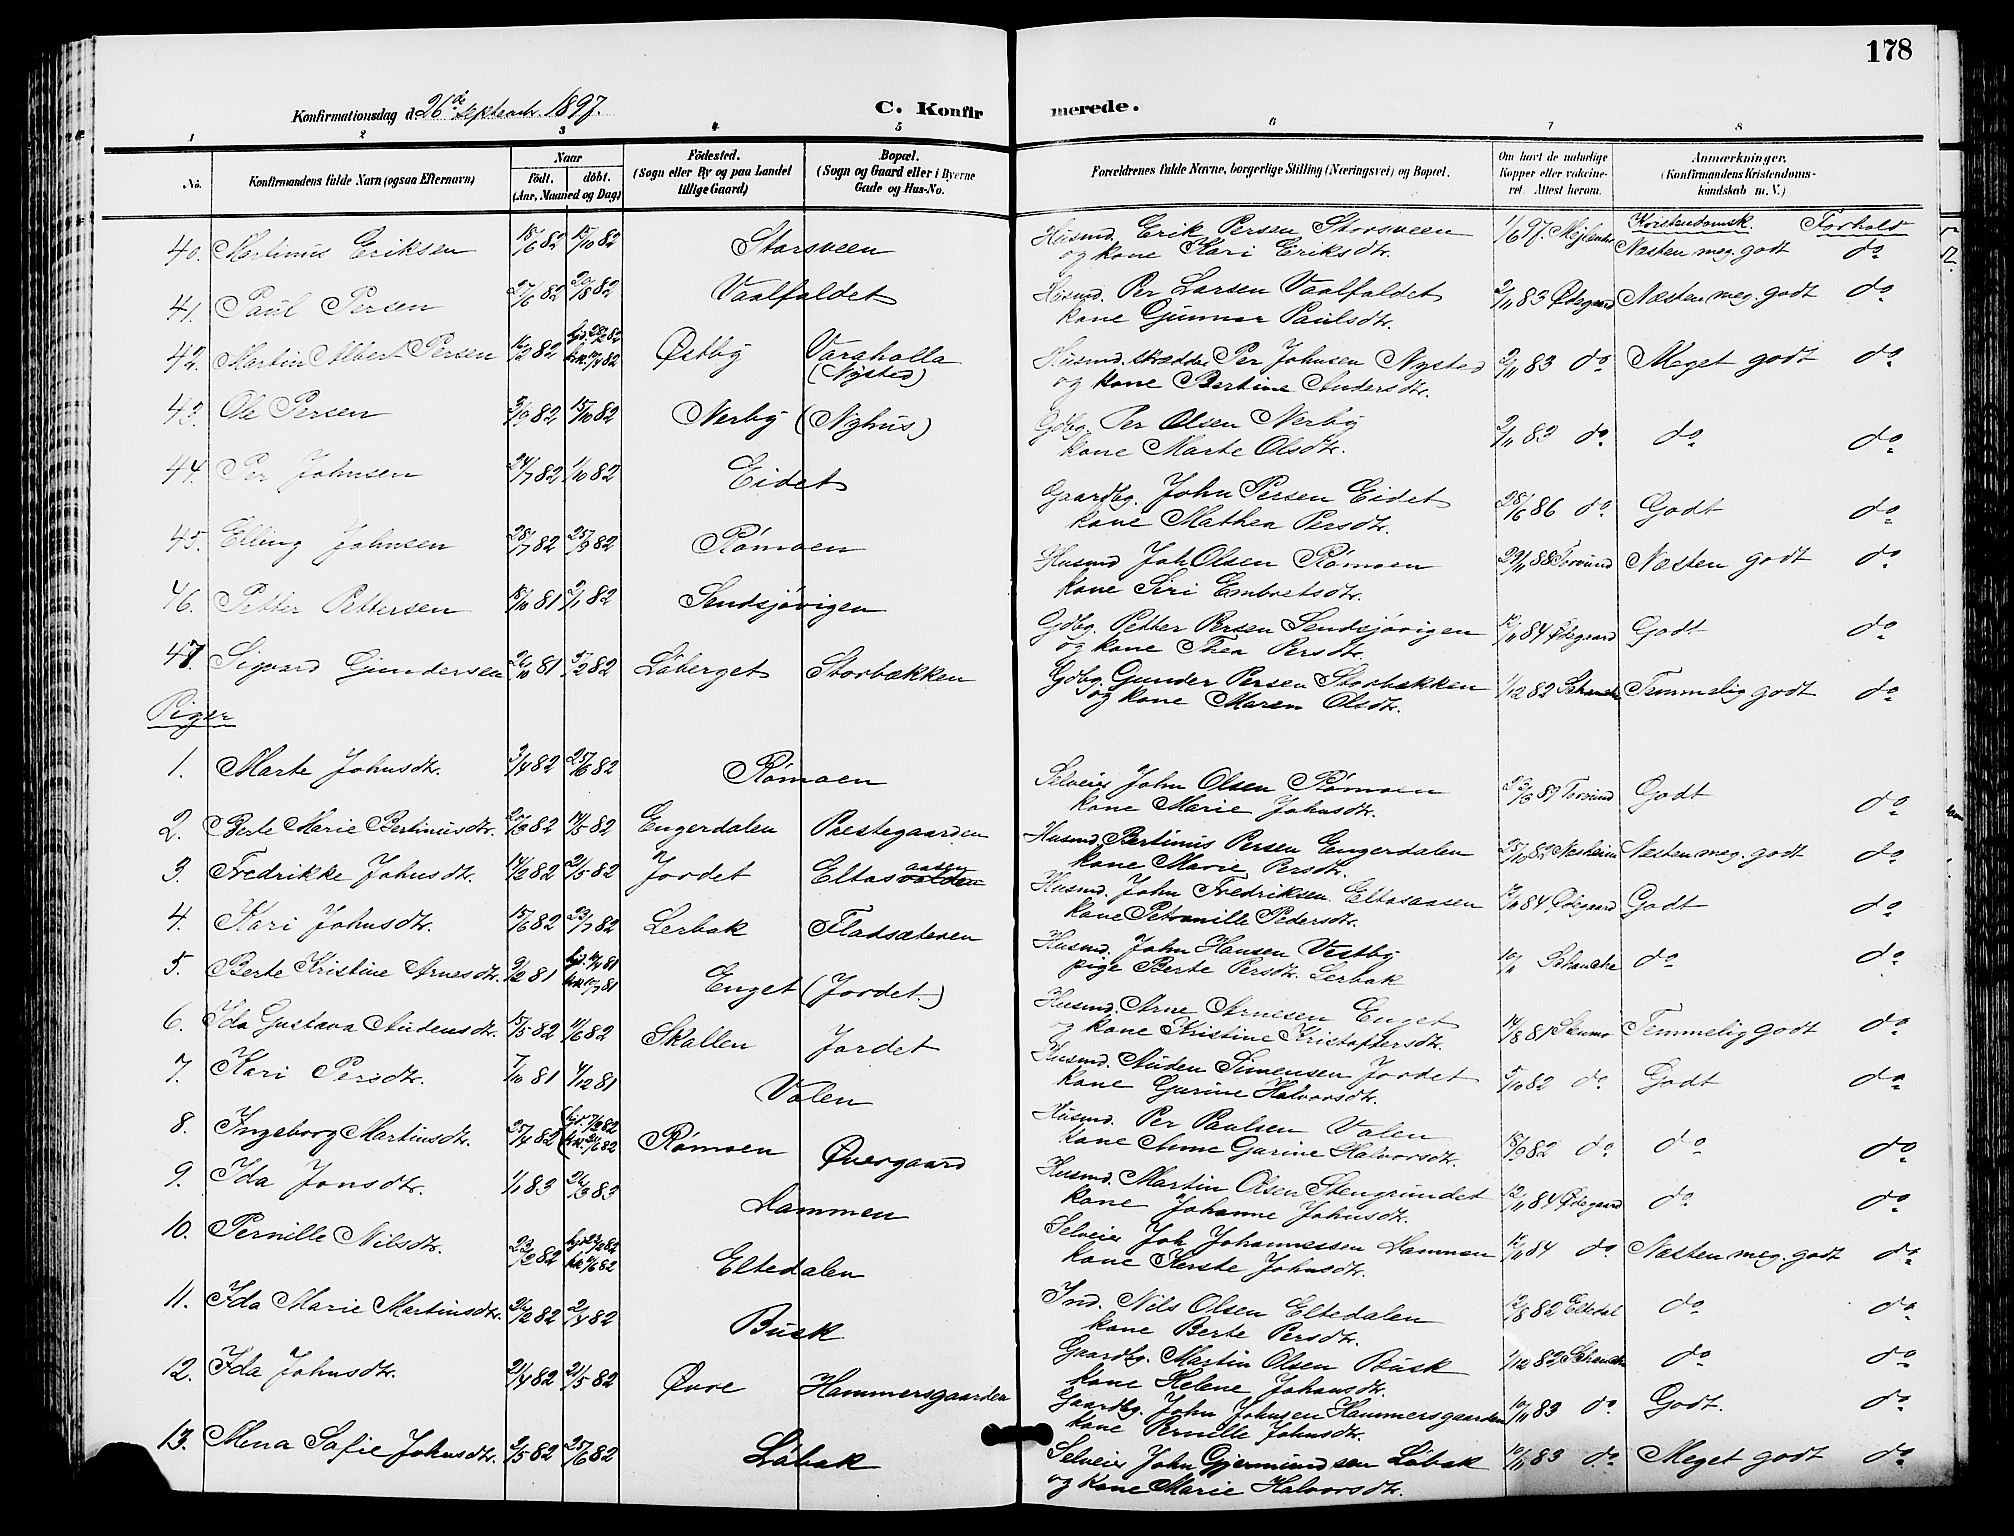 178
Konfirmationsdag d. 26de September 1897.
C. Konfirmerede.
1 2 3 4 5 6 7 8
No. Konfirmandens fulde Navn (ogsaa Efternavn) Naar født. døbt. (Aar, Maaned og Dag) Födested. (Sogn eller By og paa Landet tillige Gaard) Bopæl. (Sogn og Gaard eller i Byerne Gade og Hus-No. Forældrenes fulde Navne, borgerlige Stilling (Næringsvei) og Bopæl. Om havt de naturlige Kopper eller vakcineret. Attest herom. Anmærkninger, (Konfirmandens Kristendomskundskab m. V.)
Kristendomsk. Forhold
40. Martinus Eriksen 18/6 82 15/10 82 Storsveen Husmd. Erik Persen Storsveen og kone Kari Eriksdtr. 1/6 97. Næsten meg. godt do
41. Paul Persen 27/6 82 20/8 82 Vaalfaldet Husmd. Per Larsen Vaalfaldet kone Gunnor Paulsdtr. 2/11 83 Ødegaard Næsten meg. godt do
42. Martin Albert Persen 16/2 82 Østby Varaholla (Nysted) Husmd. skrædder Per Johnsen Nysted og kone Bertine Andersdtr. 2/11 83 do Meget godt do
43. Ole Persen 3/9 82 15/10 82 Nerby (Nyhus) Gdbg. Per Olsen Nerby kone Marte Olsdtr. 2/11 83 do do do
44. Per Johnsen 24/7 82 1/10 82 Eidet Gaardbg. John Persen Eidet kone Mathea Persdtr. 28/6 86 do Godt do
45. Elling Johnsen 28/7 82 25/9 82 Rømoen Husmd Joh Olsen Rømoen kone Siri Embretsdtr. 29/11 88 Torsund Næsten godt do
46. Petter Pettersen 15/10 81 2/1 82 Sendsjøvigen Gdbg. Petter Persen Sendsjøvigen og kone Thea Persdtr. 12/11 84 Ødegaard Godt do
47. Sigvard Gundersen 26/10 81 5/2 82 Løberget Storbækken Gdbg. Gunder Persen Storbækken og kone Maren Olsdtr. 1/12 82 Schanche Temmelig godt do
Piger
1. Marte Johnsdtr. 3/4 82 25/6 82 Rømoen Selveier John Olsen Rømoen kone Marie Johnsdtr. Torsund Godt do
2. Berte Marie Bertinusdtr. 20/3 82 14/5 82 Engerdalen Prestegaarden Husmd. Bertinus Persen Engerdalen kone Marie Persdtr. 25/10 82 Nesheim Næsten meg. godt do
3. Fredrikke Johnsdtr. 14/2 82 21/5 82 Jordet Eltosaasen Husmd. John Fredriksen Eltosaasen kone Petronille Pedersdtr. 12/11 84 Ødegaard Godt do
4. Kari Johnsdtr. 15/6 82 23/7 82 Lerbak Fladsæteren Husmd. John Hansen Vestby pige Berte Persdtr. Lerbak Schanche do do
5. Berte Kristine Arnesdtr. 9/2 81 Enget (Jordet.) Husmd. Arne Arnesen Enget og kone Kristine Kristoffersdtr. 14/8 81 Temmelig godt do
6. Ida Gustava Audensdtr. 15/5 82 11/6 82 Skallen Jordet Husmd. Auden Simensen Jordet kone Gurine Halvorsdtr. 5/10 82 do Godt do
7. Kari Persdtr. 7/10 81 4/12 81 Valen Husmd. Per Paulsen Valen kone Anne Garine Halvorsdtr. 18/9 82 do do do
8. Ingeborg Martinsdtr. 25/4 82 Rømoen Øvergaard Husmd. Martin Olsen Stengrundet kone Johanne Johnsdtr. 12/11 84 Ødegaard do do
9. Ida Jonsdtr. 1/1 83 26/3 83 Hammen Selveier Joh Johannessen Hammen kone Kerste Johnsdtr. 12/11 84 do Næsten meg. godt do
10. Pernille Nilsdtr. 23/2 82 Eltedalen Ind. Nils Olsen Eltedalen kone Berte Persdtr. 12/8 82 Eltedal do do
11. Ida Marie Martinsdtr. 26/2 82 2/4 82 Busk Gaardbg. Martin Olsen Busk kone Helene Johansdtr. 1/12 82 Schanche do do
12. Ida Johnsdtr. 21/4 82 21/5 82 Øvre Hammersgaarden Gaardbg. John Johnsen Hammersgaarden kone Pernille Johnsdtr. 10/11 83 do Godt. do
13. Mena Safie Johnsdtr. 2/5 82 25/6 82 Løbak Selveier John Gjermundsen Løbak og kone Marie Halvorsdtr. 10/11 83 do Meget godt do